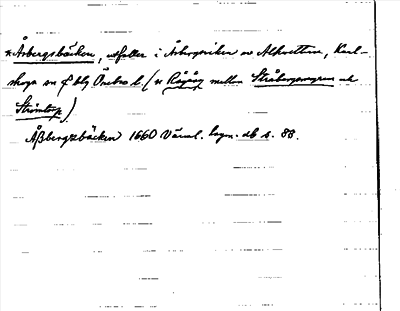 *Åsbergsbäcken, utfaller i Arbogaviken av Alkvettern, Karl-
skoga sn o bg Örebro l. (= Rågång mellan Stråbergs och
Strömtorp)
Åßbergzbäcken 1660 Värml. hgn. db s. 88.